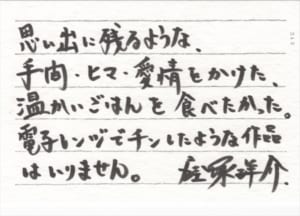 思い出に残るような、
手間・ヒマ・愛情をかけた、
温かいごはんを食べたかった。
電子レンジでチンしたような作品
はいりません。 塚洋介.